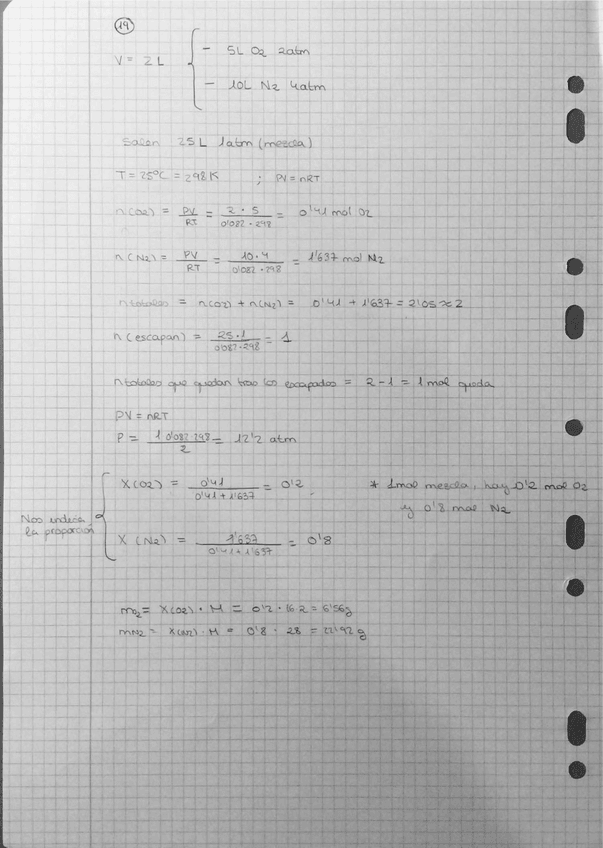 19
V = 2L
- 5L O2 2atm
- 10L N2 4atm
Salen 25L 1atm (mezcla)
T = 25ºC = 298K ; PV = nRT
n(O2) = PV/RT = 2 · 5 / 0'082 · 298 = 0'41 mol O2
n(N2) = PV/RT = 10 · 4 / 0'082 · 298 = 1'637 mol N2
n totales = n(O2) + n(N2) = 0'41 + 1'637 = 2'05 ≈ 2
n (escapan) = 25 · 1 / 0'082 · 298 = 1
n totales que quedan tras los escapados = 2 - 1 = 1 mol queda
PV = nRT
P = 1 0'082 · 298 / 2 = 12'2 atm
X(O2) = 0'41 / 0'41 + 1'637 = 0'2
* 1mol mezcla, hay 0'2 mol O2
y 0'8 mol N2
Nos
la proporción
X (N2) = 1'637 / 0'41 + 1'637 = 0'8
mO2 = X(O2) · M = 0'2 · 16 · 2 = 6'56g
mN2 = X(N2) · M = 0'8 · 28 = 22'92 g